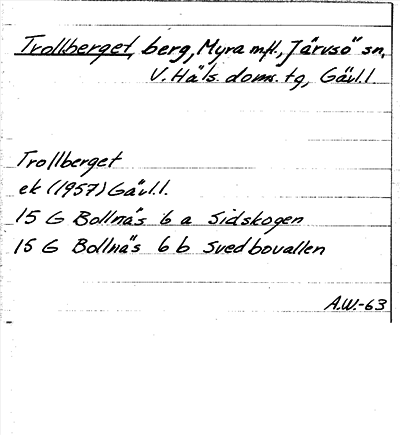 Trollberget, berg, Myra mfl., Järvsö sn,
V. Häls. doms. tg, Gävl.l.
Trollberget
ek (1957) Gävl.l.
15 G Bollnäs 6 a Sidskogen
15 G Bollnäs 6 b Svedbovallen
A.W.-63